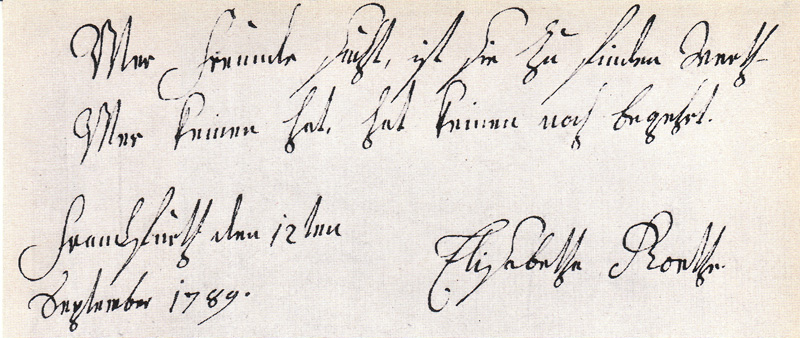 Wer Freunde sucht, ist sie zu finden werth
Wer keinen hat, hat keinen noch begehrt.
Franckfurth den 12ten
September 1789.
Elisabetha Goethe